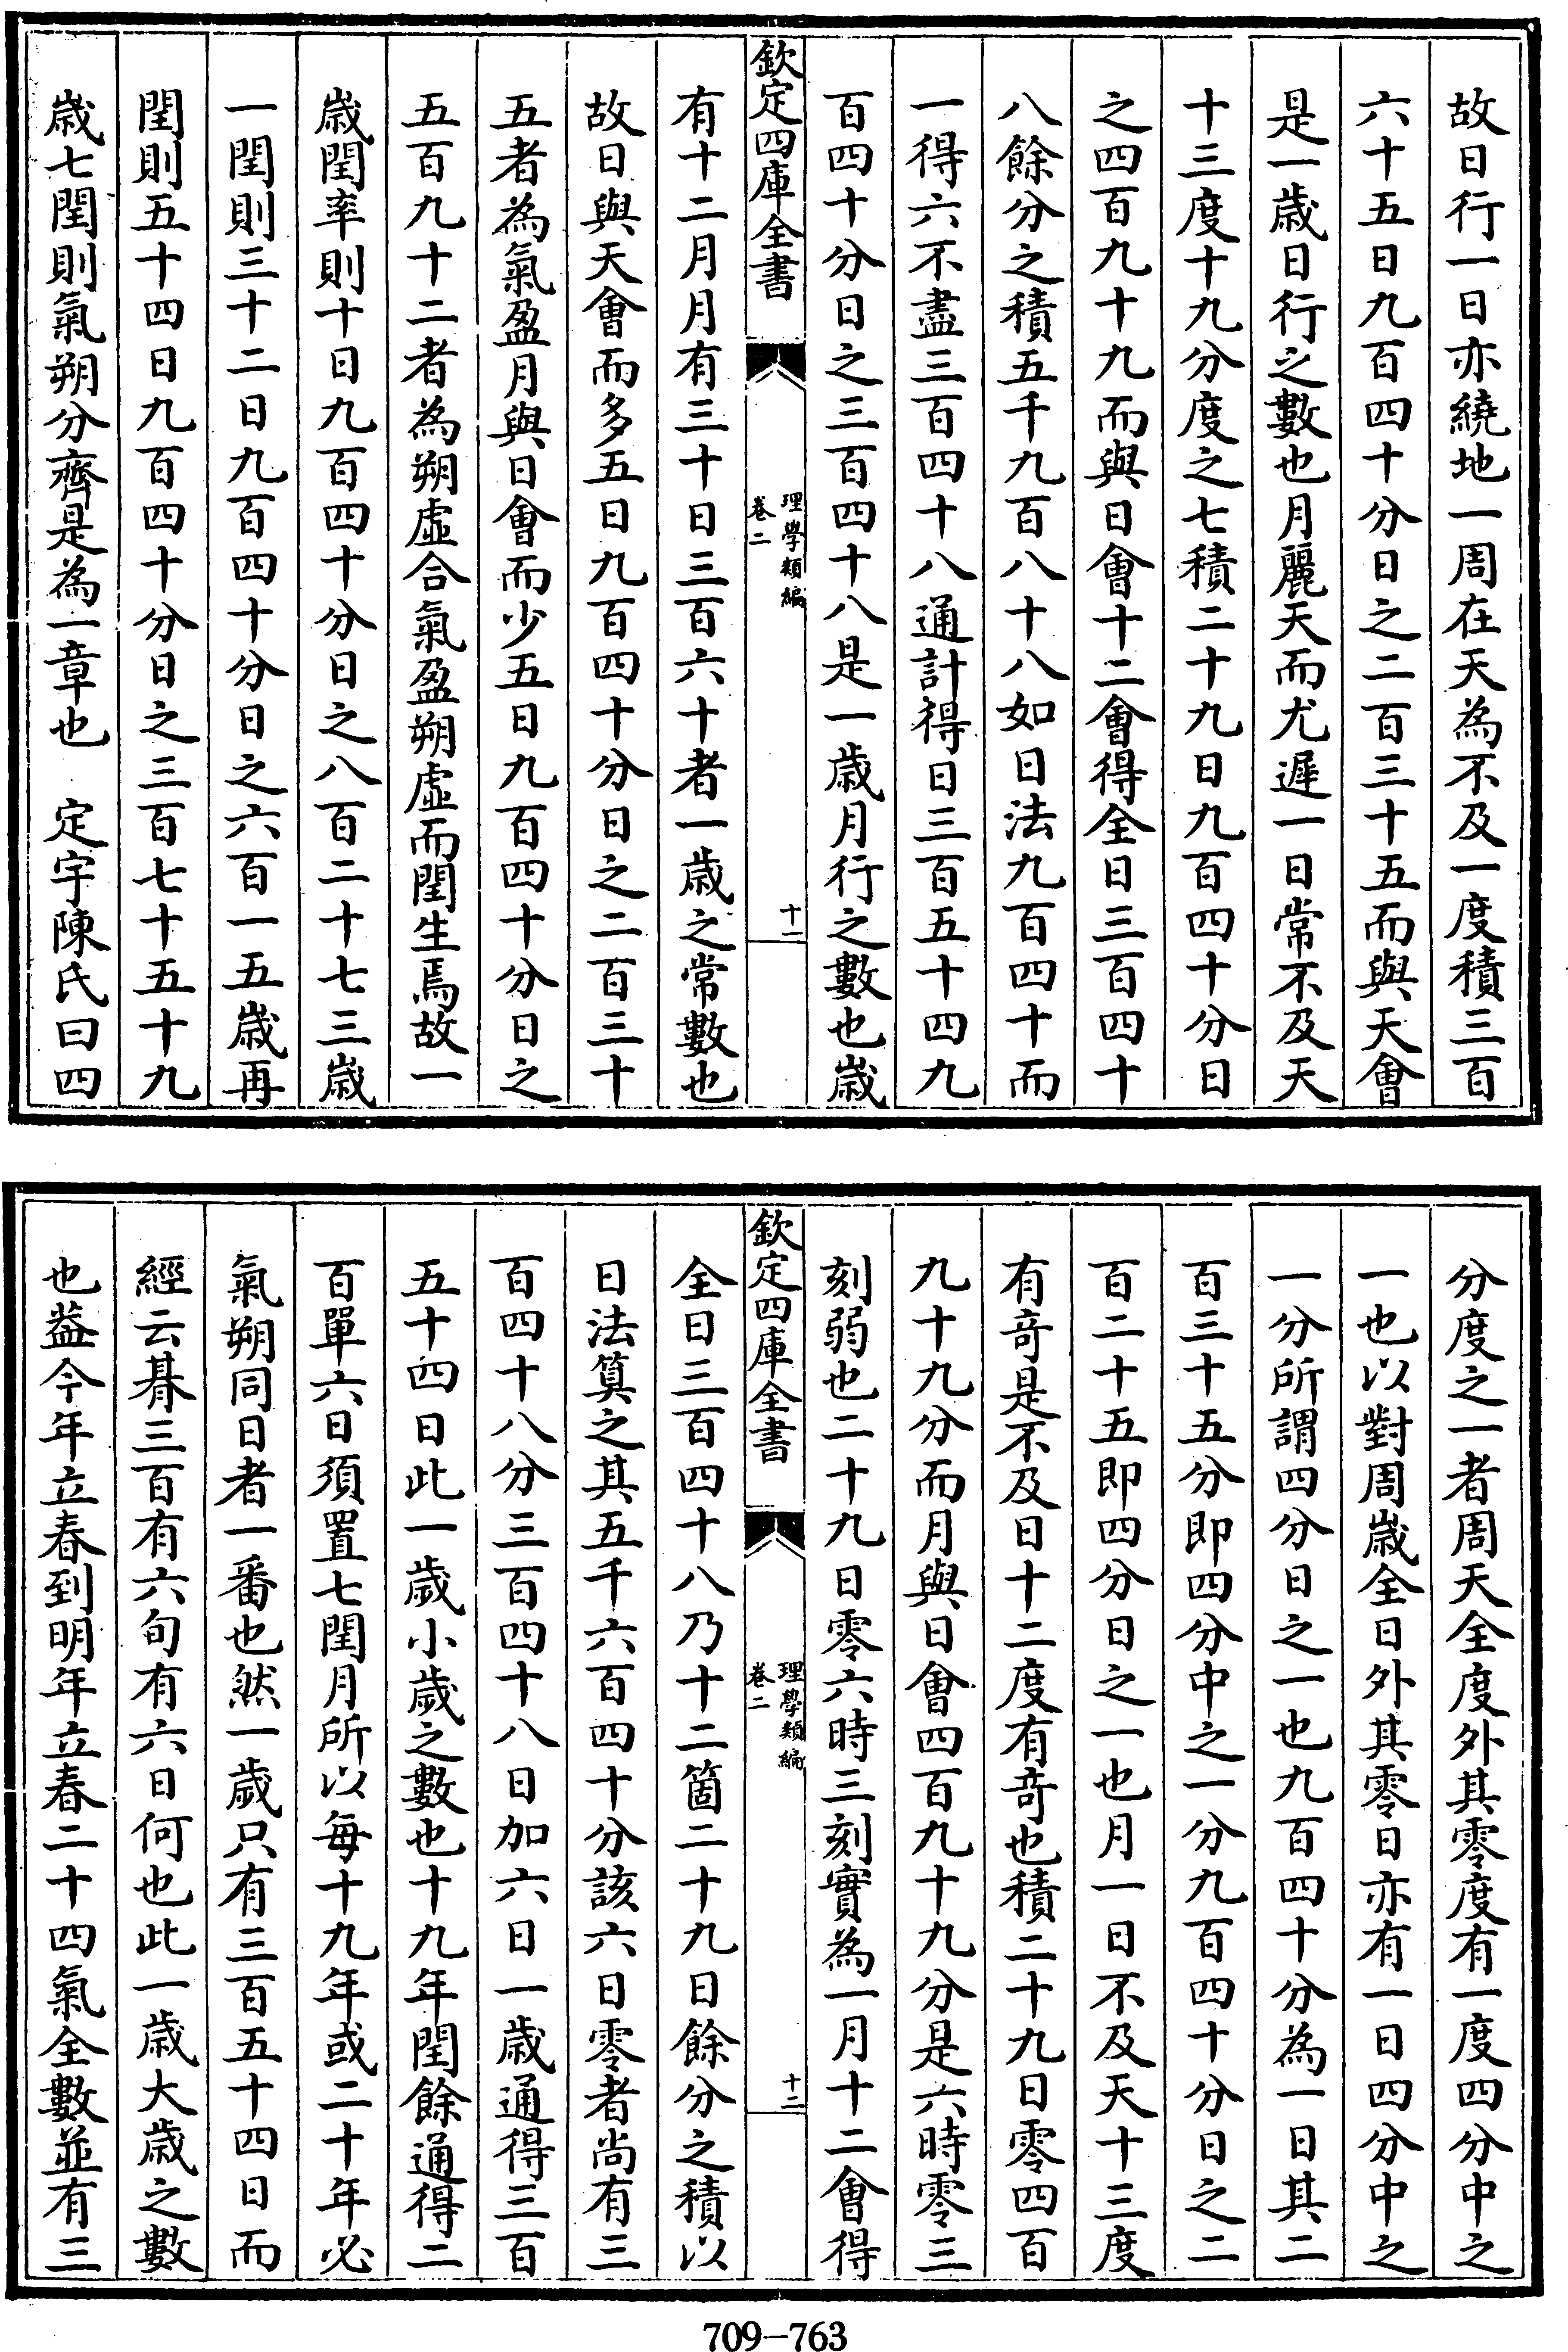 故日行一日亦繞地一周在天為不及一度積三百
六十五日九百四十分日之二百三十五而與天會
是一歲日行之數也月麗天而尤遲一日常不及天
十三度十九分度之七積二十九日九百四十分日
之四百九十九而與日會十二會得全日三百四十
八餘分之積五千九百八十八如日法九百四十而
一得六不盡三百四十八通計得日三百五十四九
百四十分日之三百四十八是一歲月行之數也歲
欽定四庫全書
理學類編
卷二
十一
有十二月月有三十日三百六十者一歲之常數也
故日與天會而多五日九百四十分日之二百三十
五者為氣盈月與日會而少五日九百四十分日之
五百九十二者為朔虛合氣盈朔虛而閏生焉故一
歲閏率則十日九百四十分日之八百二十七三歲
一閏則三十二日九百四十分日之六百一五歲再
閏則五十四日九百四十分日之三百七十五十九
歲七閏則氣朔分齊是為一章也 定宇陳氏曰四
分度之一者周天全度外其零度有一度四分中之
一也以對周歲全日外其零日亦有一日四分中之
一分所謂四分日之一也九百四十分為一日其二
百三十五分即四分中之一分九百四十分日之二
百二十五即四分日之一也月一日不及天十三度
有竒是不及日十二度有竒也積二十九日零四百
九十九分而月與日會四百九十九分是六時零三
刻弱也二十九日零六時三刻實為一月十二會得
欽定四庫全書
理學類編
卷二
十二
全日三百四十八乃十二箇二十九日餘分之積以
日法筭之其五千六百四十分該六日零者尚有三
百四十八分三百四十八日加六日一歲通得三百
五十四日此一歲小歲之數也十九年閏餘通得二
百單六日須置七閏月所以每十九年或二十年必
氣朔同日者一番也然一歲只有三百五十四日而
經云朞三百有六旬有六日何也此一歲大歲之數
也葢今年立春到明年立春二十四氣全數並有三
709-763